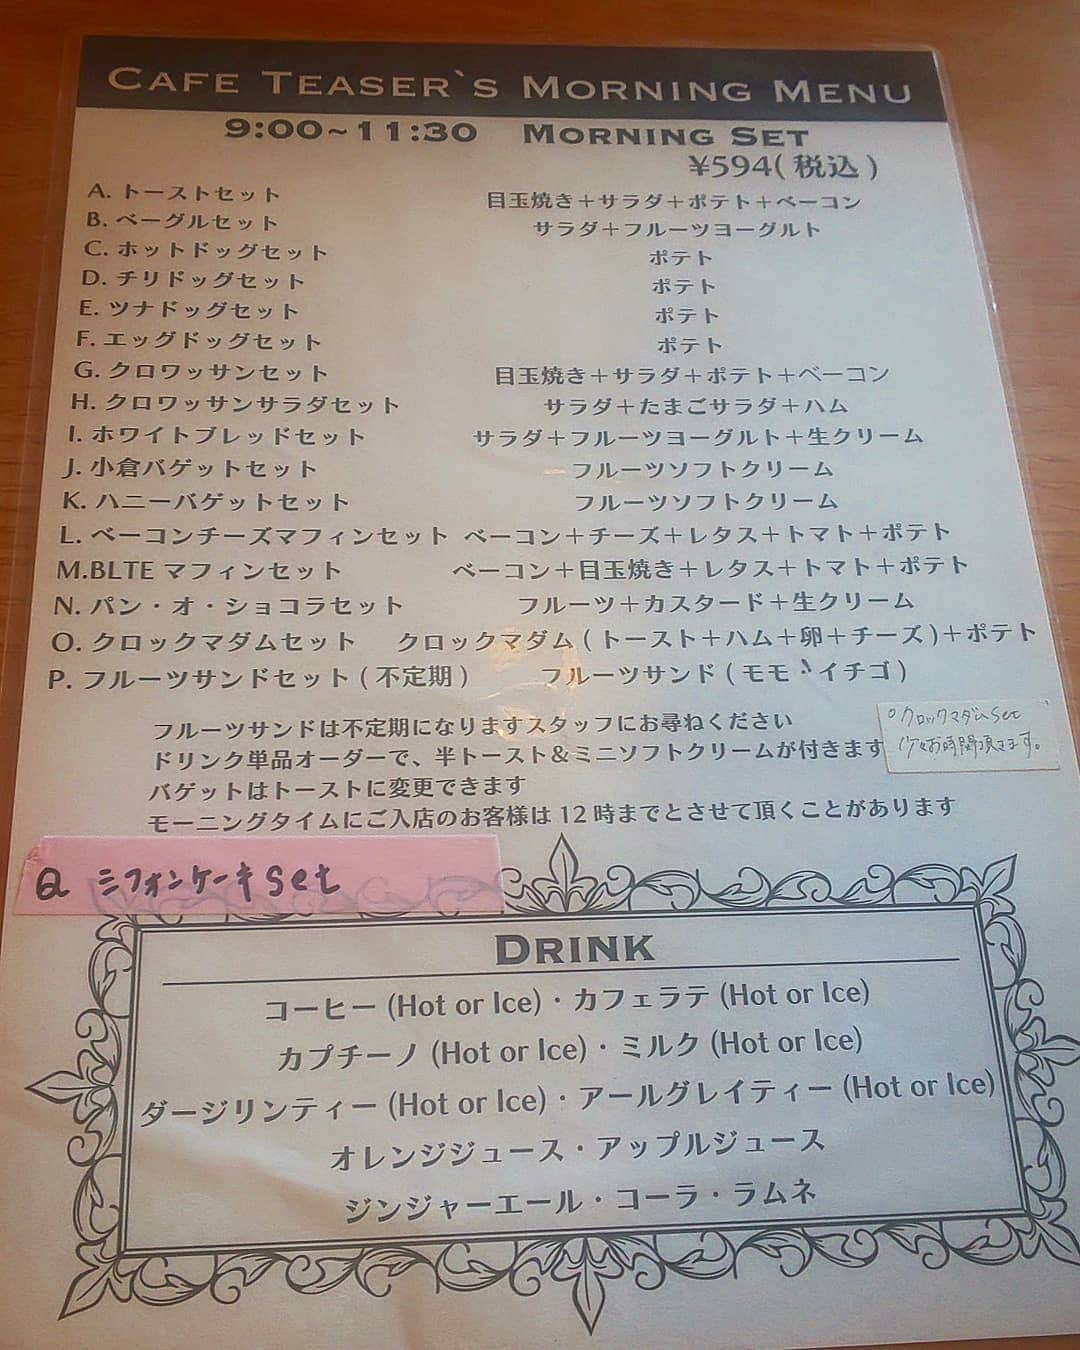 CAFE TEASER`S MORNING MENU
9:00~11:30 MORNING SET
¥594(税込)
A. トーストセット 目玉焼き+サラダ+ポテト+ベーコン
B. ベーグルセット サラダ+フルーツヨーグルト
C. ホットドッグセット ポテト
D. チリドッグセット ポテト
E. ツナドッグセット ポテト
F. エッグドッグセット ポテト
G. クロワッサンセット 目玉焼き+サラダ+ポテト+ベーコン
H. クロワッサンサラダセット サラダ+たまごサラダ+ハム
I. ホワイトブレッドセット サラダ+フルーツヨーグルト+生クリーム
J. 小倉バゲットセット フルーツソフトクリーム
K. ハニーバゲットセット フルーツソフトクリーム
L. ベーコンチーズマフィンセット ベーコン+チーズ+レタス+トマト+ポテト
M.BLTE マフィンセット ベーコン+目玉焼き+レタス+トマト+ポテト
N. パン・オ・ショコラセット フルーツ+カスタード+生クリーム
O. クロックマダムセット クロックマダム(トースト+ハム+卵+チーズ)+ポテト
P. フルーツサンドセット(不定期) フルーツサンド(モモ、イチゴ)
フルーツサンドは不定期になりますスタッフにお尋ねください
ドリンク単品オーダーで、半トースト&ミニソフトクリームが付きます
バゲットはトーストに変更できます
モーニングタイムにご入店のお客様は12時までとさせて頂くことがあります
○クロックマダムSet
少々お時間頂きます。
Q シフォンケーキSet
DRINK
コーヒー(Hot or Ice)・カフェラテ(Hot or Ice)
カプチーノ(Hot or Ice)・ミルク(Hot or Ice)
ダージリンティー(Hot or Ice)・アールグレイティー(Hot or Ice)
オレンジジュース・アップルジュース
ジンジャーエール・コーラ・ラムネ